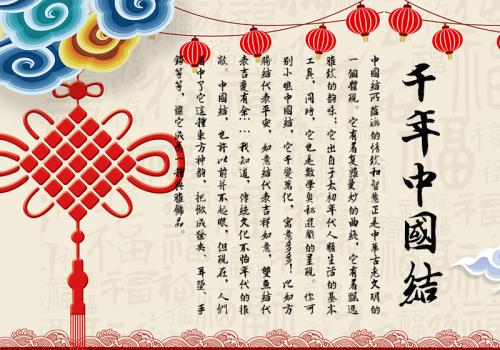 千年中國結
中國結所蘊涵的情致和智慧正是中華古老文明的
一個體現。它有着复雜曼妙的曲綫，它有着飄逸
雅致的韵味；它出自于太初年代人類生活的基本
工具，同時，它也是數學奥秘遊戲的呈現。你可
别小瞧中國結，它千變萬化，寓意多多！比如方
勝結代表平安，如意結代表吉祥如意，雙魚結代
表吉慶有余…我知道，傳統文化不怕年代的推
敲。中國結，也許以前并不起眼，但現在，人們
看中了它這種東方神韵，把做成發夾、耳墜、手
鐲等等，讓它成爲一種飾品。